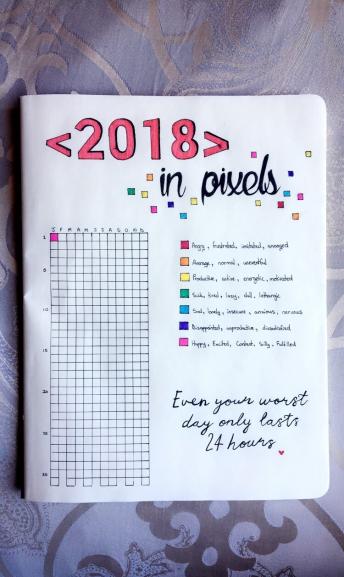 <2018>
in pixels
J F M A M J J A S O N D
1
5
10
15
20
25
30
Angry, frustrated, irritated, annoyed
Average, normal, uneventful
Productive, active, energetic, motivated
Sick, tired, lazy, dull, lethargic
Sad, lonely, insecure, anxious, nervous
Disappointed, unproductive, dissatisfied
Happy, Excited, Content, Silly, Fulfilled
Even your worst
day only lasts
24 hours